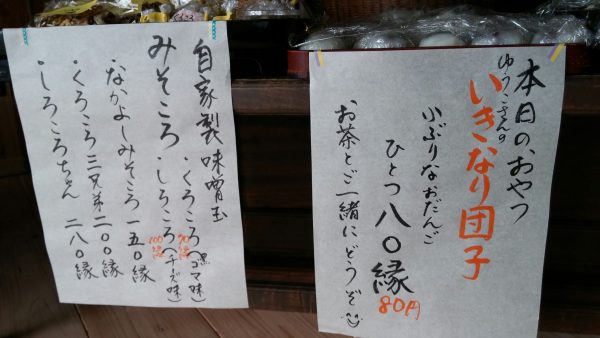 本日の、おやつ
ゆうこさんの
いきなり団子
小ぶりなおだんご
ひとつ 八〇縁
80円
お茶とご一緒にどうぞ
自家製味噌玉
みそころ
・くろころ(黒ゴマ味)
90縁
・しろころ(チーズ味)
100縁
・なかよしみそころ 一五〇縁
・くろころ三兄弟 二〇〇縁
・しろころちゃん 二八〇縁